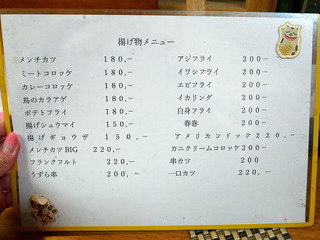 揚げ物メニュー
メンチカツ 180,-
ミートコロッケ 180,-
カレーコロッケ 180,-
鳥のカラアゲ 180,-
ポテトフライ 180,-
揚げシュウマイ 150,-
揚げギョウザ 150,-
メンチカツBIG 220,-
フランクフルト 220,-
うずら串 200,-
アジフライ 200-
イワシフライ 200-
エビフライ 200-
イカリング 200-
白身フライ 200-
春巻 200-
アメリカンドック 220,-
カニクリームコロッケ 200-
串カツ 200
一口カツ 220,-